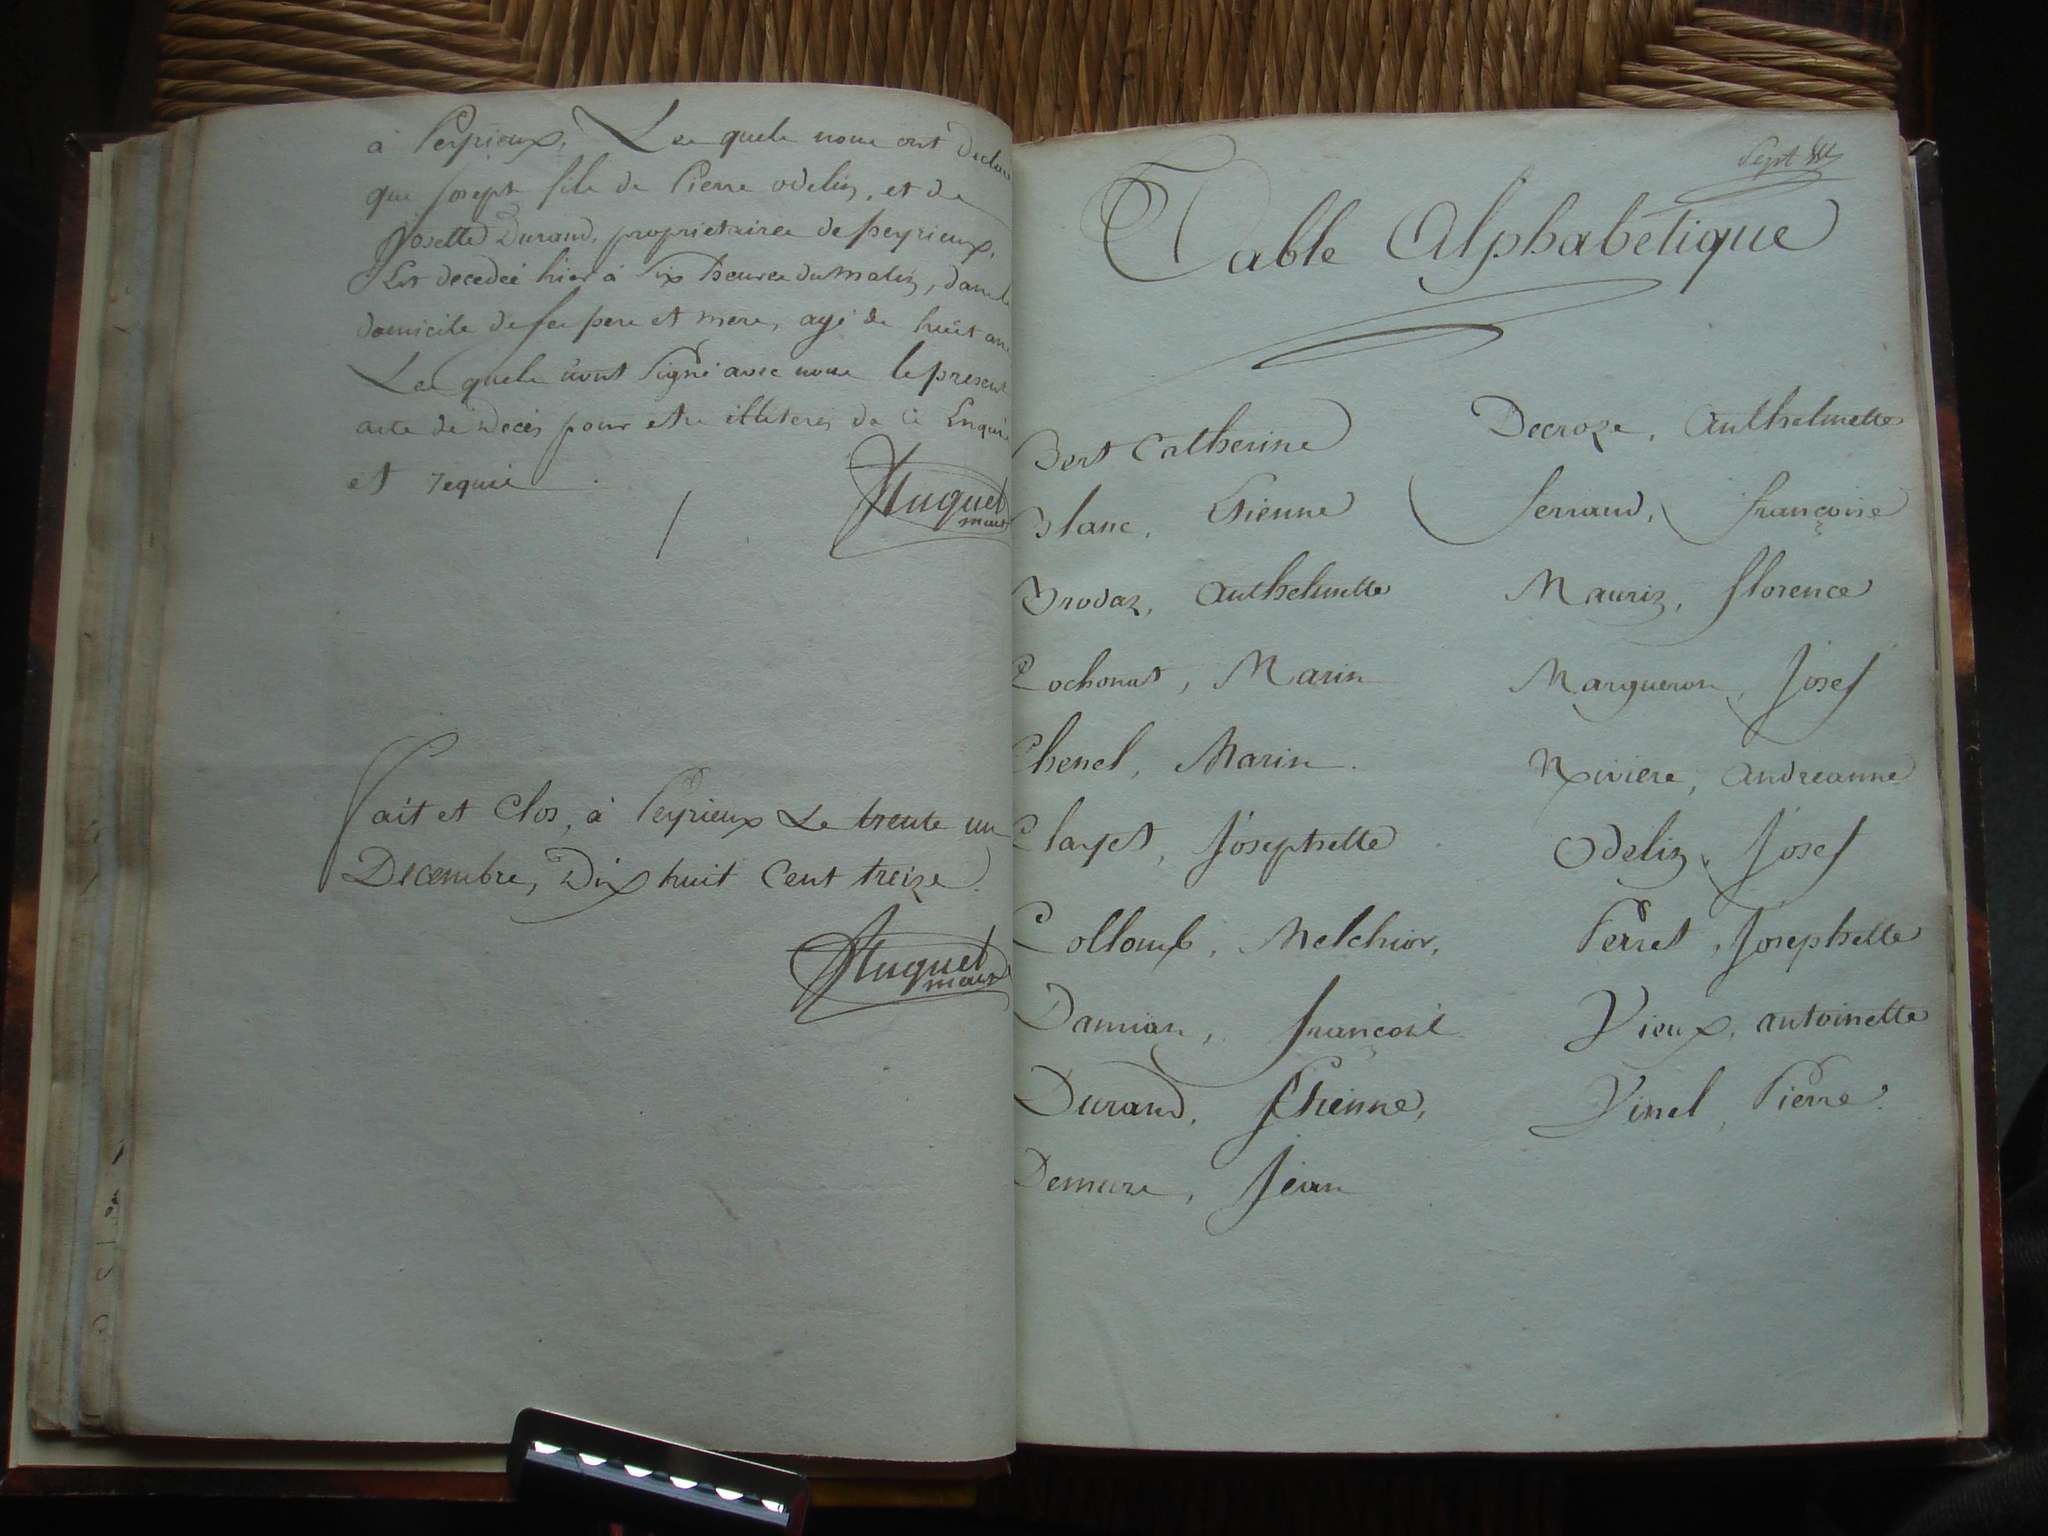 à Peyrieux, Les quels nous ont declaré
que Joseph fils de Pierre Odelin, et de
Josette Durand, proprietaires de peyrieux,
Est decedé hier à Six heures du matin, dans le
domicile de ses pere et mere, agé de huit ans
Les quels n'ont Signé avec nous le present
acte de Decés pour etre illiterés de ce Enquis
et requis
Huguet
maire
Fait et Clos, à Peyrieux Le trente un
Decembre, Dix huit Cent treize.
Huguet
maire
Sept
Table Alphabetique
Bert Catherine
Blanc, Etienne
Brodaz, Anthelmette
Cochonat, Marin
Chenel, Marin
Clayet, Josephette
Collomb, Melchior,
Damian, François
Durand, Etienne,
Demeure, Jean
Decroze, Anthelmette
Ferrand, Françoise
Maurin, Florence
Margueron, Josef
Riviere, Andreanne
Odelin, Josef
Perret, Josephette
Vieux, antoinette
Vinel, Pierre